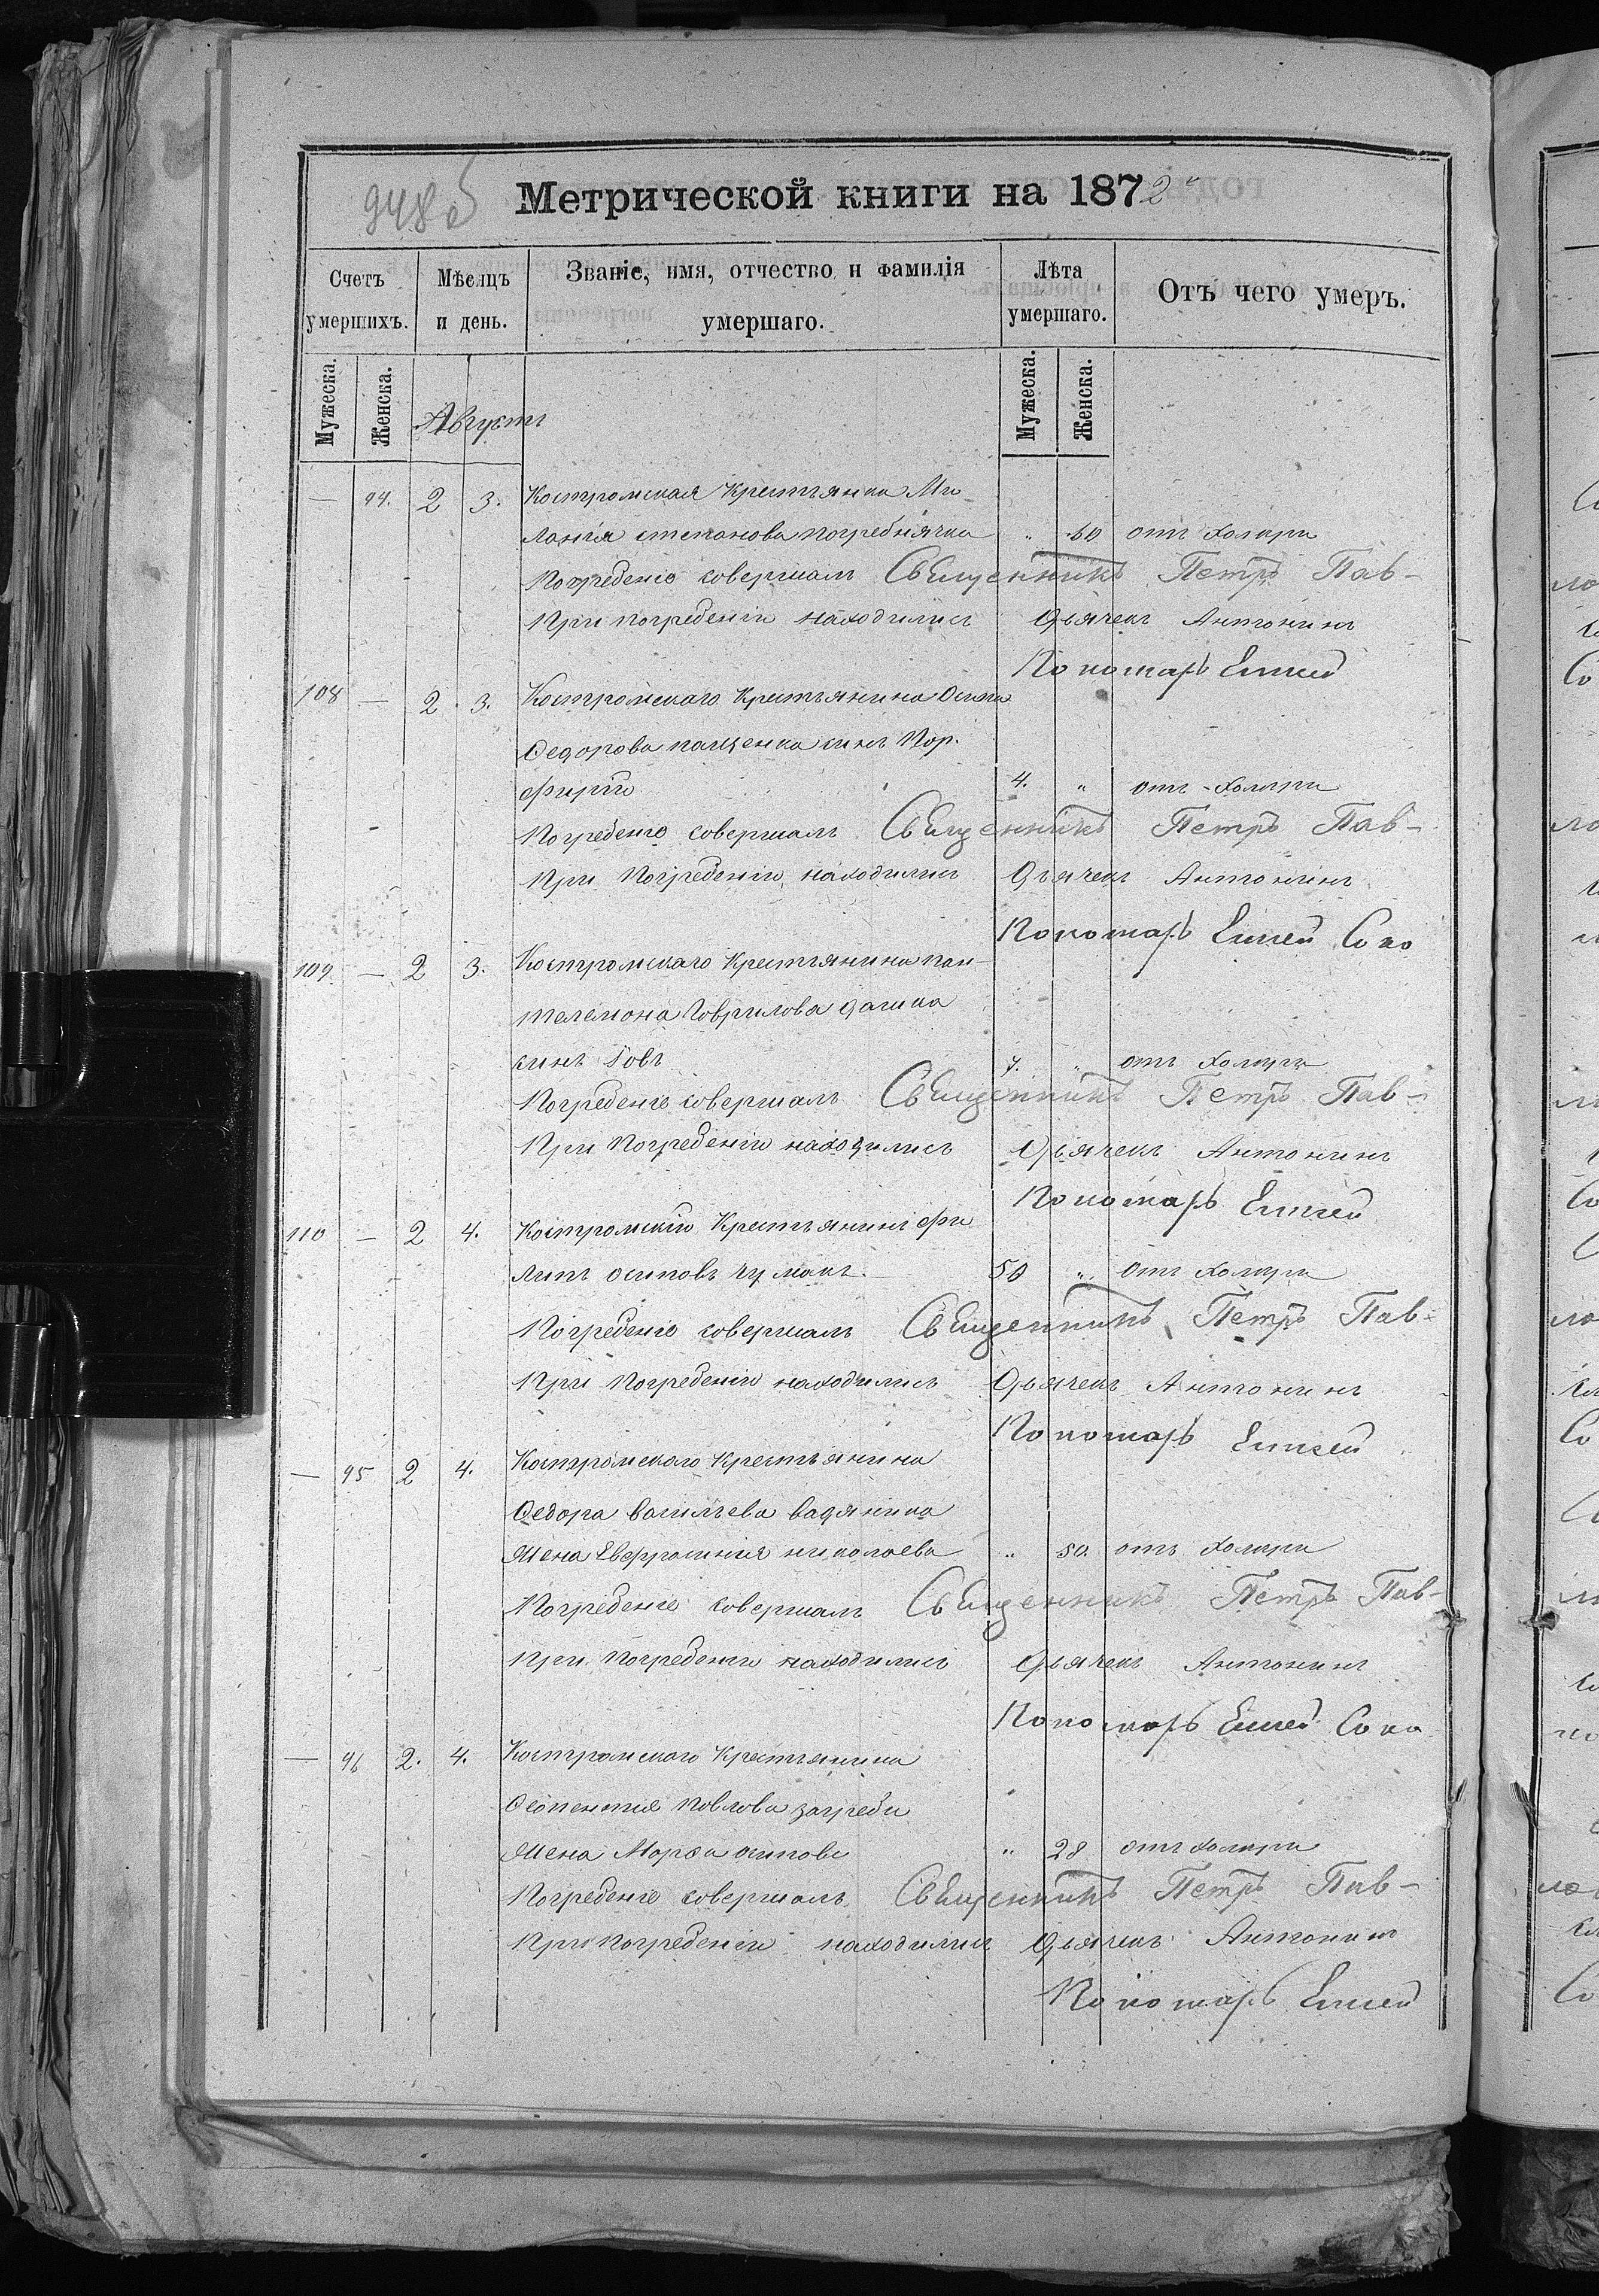 948об
Метрической книги на 1872
Счетъ умершихъ.
Мѣсяцъ и день.
Званіе, имя, отчество и фамилія умершаго.
Лѣта умершаго.
Отъ чего умеръ.
Мужеска.
Женска.
Августъ
Мужеска.
Женска.
— 94. 2 3. Костромская Крестьянка Ми-
ланія степанова погребнячка „ 60 отъ холеры
Погребеніе совершалъ Священникъ Петръ Пав-
При погребеніи находились Дьячекъ Антонинъ
Пономарь Елисей
108 — 2 3. Костромскаго Крестьянина Осипа
Федорова пащенка сынъ Пор-
фирій 4. „ отъ холеры
Погребеніе совершалъ Священникъ Петръ Пав-
При Погребеніи находились Дьячекъ Антонинъ
Пономарь Елисей Соко
109. — 2 3. Костромскаго Крестьянина пан-
телемона Гаврилова дашка
сынъ Іовъ 7. „ отъ холеры
Погребеніе совершалъ Священникъ Петръ Пав-
При Погребеніи находились Дьячекъ Антонинъ
Пономарь Елисей
110 — 2 4. Костромскій Крестьянинъ фи
липъ осиповъ чумакъ. 50 „ отъ холеры
Погребеніе совершалъ Священникъ Петръ Пав-
При Погребеніи находились Дьячекъ Антонинъ
Пономарь Елисей
— 95 2 4. Костромскаго Крестьянина
Федора васильева вадяника
жена Евфросинія николаева „ 50. отъ холеры
Погребеніе совершалъ Священникъ Петръ Пав-
При Погребеніи находились Дьячекъ Антонинъ
Пономарь Елисей Соко
— 96 2. 4. Костромскаго Крестьянина
Феопентия Павлова загреби
жена Марфа осипова „ 28 отъ холеры
Погребеніе совершалъ Священникъ Петръ Пав-
При погребеніи находились Дьячекъ Антонинъ
Пономарь Елисей